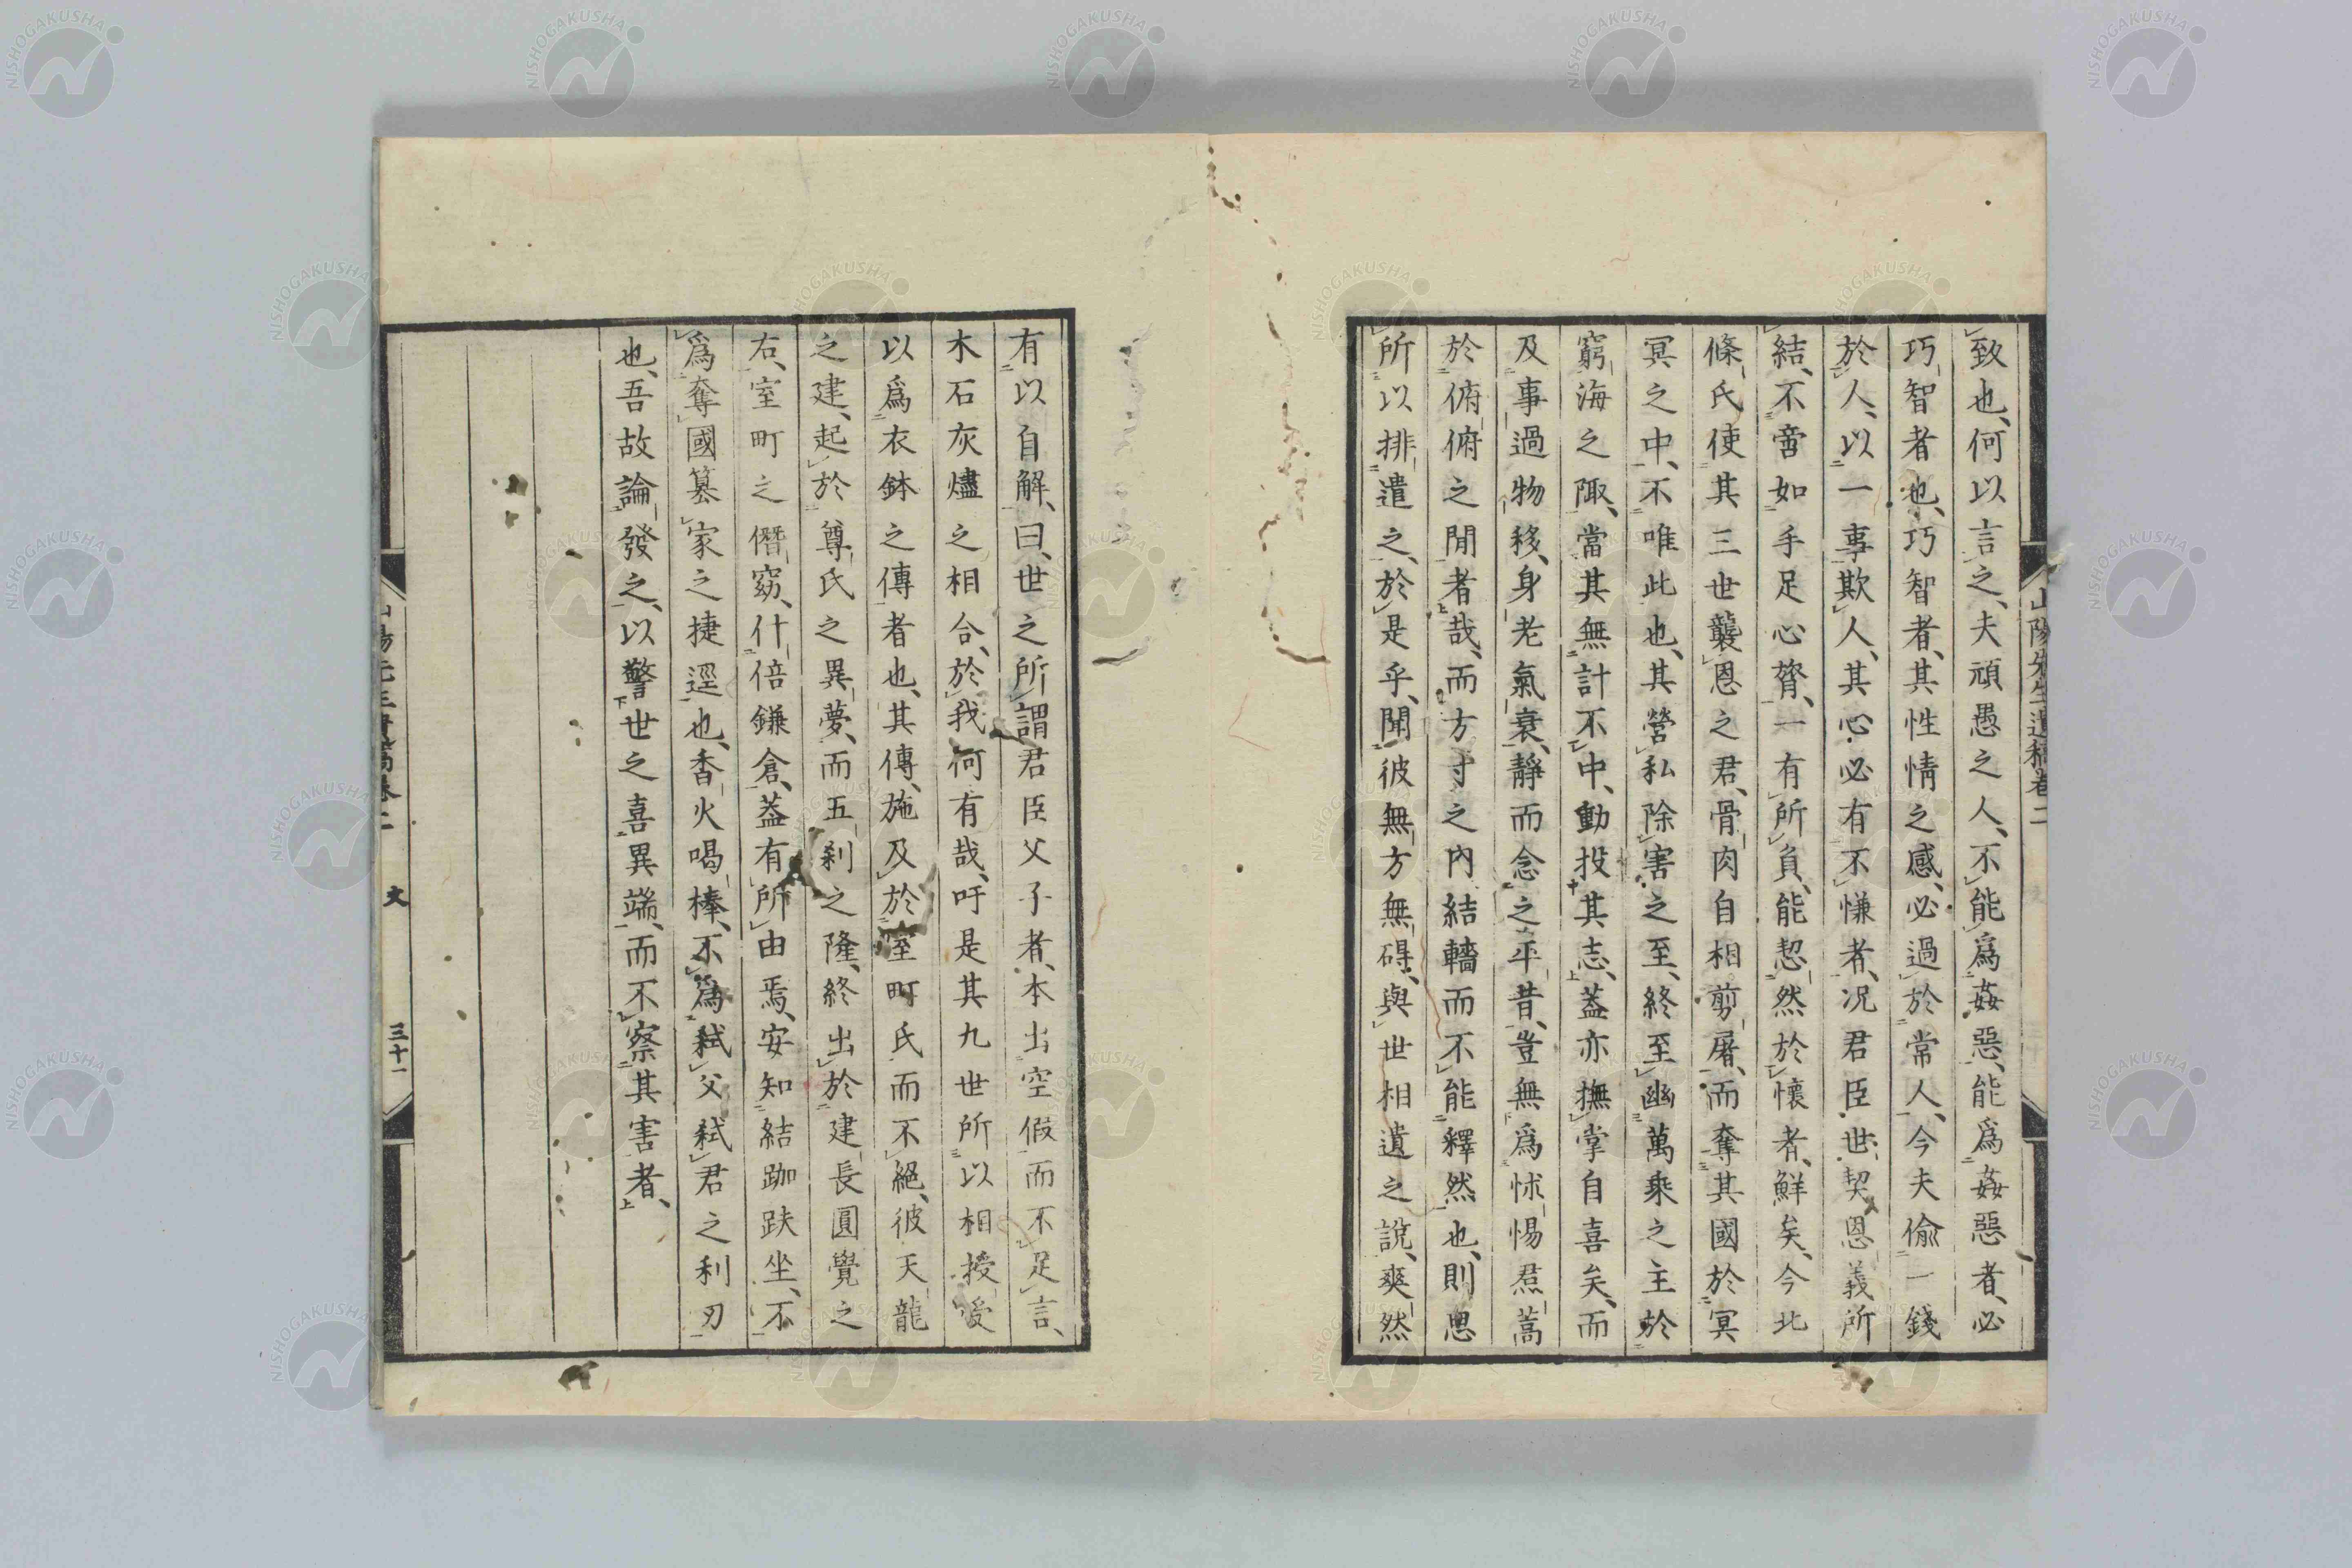 山陽先生遺稿卷二
致也、何以言之、夫頑愚之人、不能爲姦惡、能爲姦惡者、必
巧智者也、巧智者、其性情之感、必過於常人、今夫偷一錢
於人、以一事欺人、其心必有不慊者、况君臣世契恩義所
結、不啻如手足心膂、一有所負、能恝然於懷者、鮮矣、今北
條氏使其三世襲恩之君、骨肉自相剪屠、而奪其國於冥
冥之中、不唯此也、其營私除害之至、終至幽萬乘之主於
窮海之陬、當其無計不中、動投其志、蓋亦撫掌自喜矣、而
及事過物移、身老氣衰、靜而念之平昔、豈無爲怵惕焄蒿
於俯俯之間者哉、而方寸之內結轖而不能釋然也、則思
所以排遣之、於是乎、聞彼無方無碍、與世相遺之說、爽然
有以自解、曰、世之所謂君臣父子者、本出空假而不足言、
木石灰燼之相合、於我何有哉、吁是其九世所以相授受
以爲衣鉢之傳者也、其傳、施及於室町氏而不絕、彼天龍
之建、起於尊氏之異夢、而五刹之隆、終出於建長圓覺之
右、室町之僭竊、什倍鎌倉、蓋有所由焉、安知結跏趺坐、不
爲奪國簒家之捷逕也、香火喝棒、不爲弑父弑君之利刃
也、吾故論發之、以警世之喜異端、而不察其害者、
文
三十一
NISHOGAKUSHA